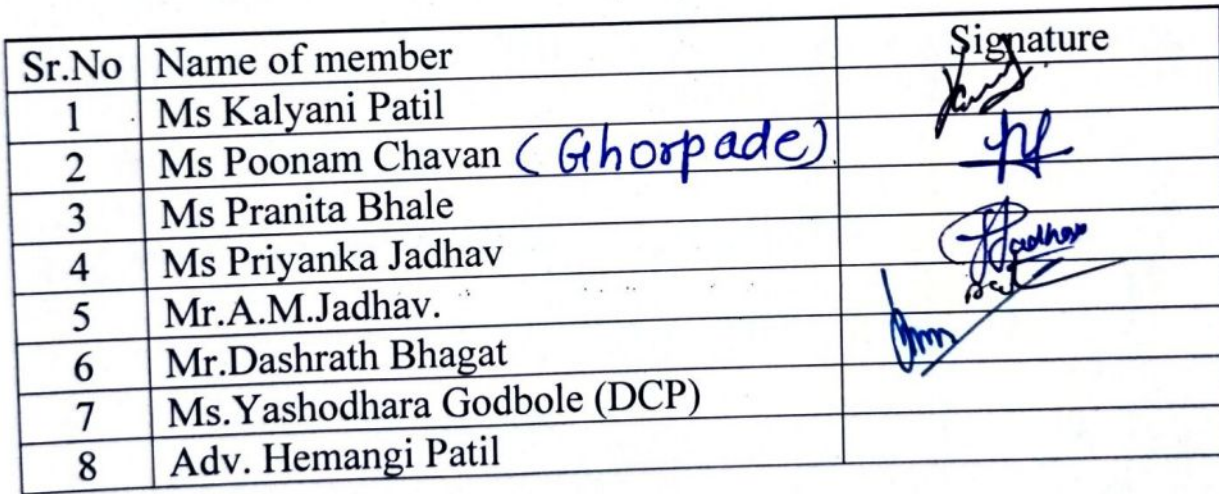 Sr.No Name of member Signature
1 Ms Kalyani Patil
2 Ms Poonam Chavan ( Ghorpade)
3 Ms Pranita Bhale
4 Ms Priyanka Jadhav Jadhav
5 Mr.A.M.Jadhav.
6 Mr.Dashrath Bhagat
7 Ms.Yashodhara Godbole (DCP)
8 Adv. Hemangi Patil